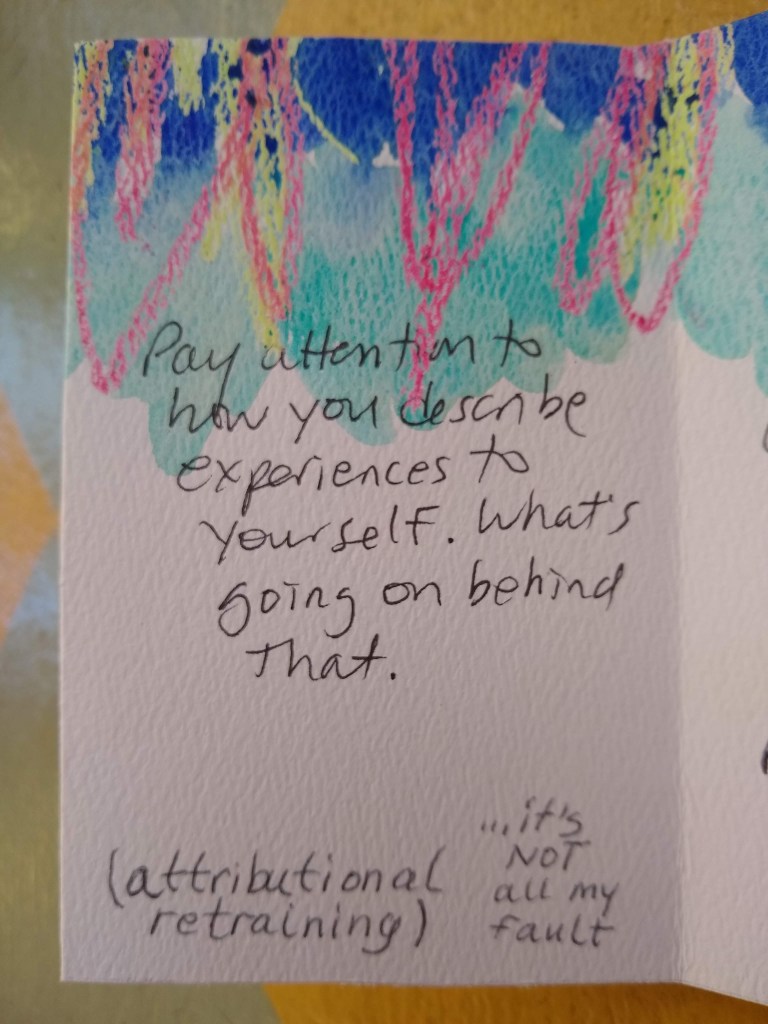 Pay attention to
how you describe
experiences to
yourself. What's
going on behind
that.
(attributional
retraining)
...it's
NOT
all my
fault